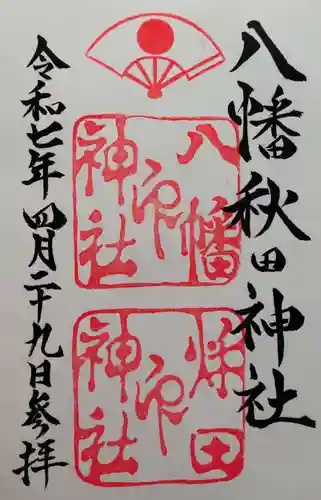 八幡秋田神社
八幡
神社
印
秋田
神社
印
令和七年四月二十九日参拝